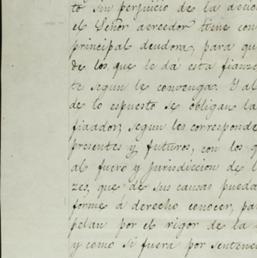 te sin perjuicio de la accio
el Señor acreedor tiene con
principal deudora, para qu
de los que le dá esta fianz
te segun le convenga. Y al
de lo espuesto se obligan la
fiador, segun les corresponde
presentes y futuros, con los q
al fuero y jurisdiccion de l
zes, que de sus causas pueda
forme á derecho conocer, pa
pelan por el rigor de la
y como si fuera por sentenc